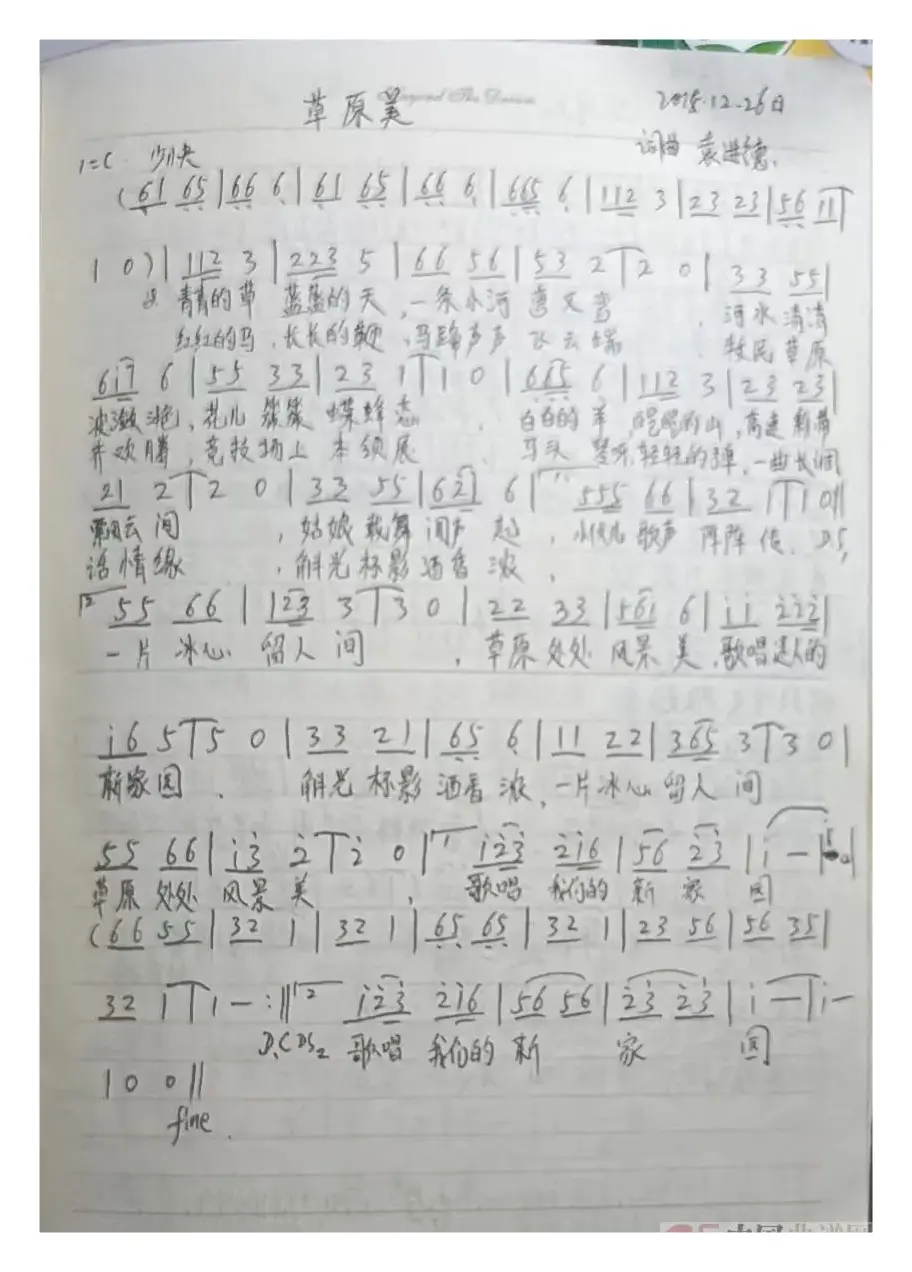 草原美
2015.12.26日
1=C 稍快
词曲 袁进德.
(61 65|66 6|61 65|66 6|665 6|112 3|23 23|56 11
1 0)|112 3|223 5|66 56|53 2|2 0|33 55|
青青的草 蓝蓝的天,一条小河 弯又弯 , 河水清清
红红的马,长长的鞭,马蹄声声 飞云端 , 牧民草原
617 6|55 33|23 1|1 0|665 6|112 3|23 23|
波潋滟,花儿 簇簇 蝶蜂恋 , 白白的羊,的山,高速
齐欢腾,竞技场上 本领展 , 马头 轻轻的弹,一曲长调
21 2|2 0|33 55|621 6|1 555 66|32 1|1 0||
云间 ,姑娘载舞闻声起,歌声 阵阵传. D.S,
话情缘 ,斛光杯影洒香浓,
2 55 66|123 3|3 0|22 33|561 6|i i i i i|
一片 冰心 留人间 ,草原处处 风景美,歌唱的
i6 5|5 0|33 21|65 6|11 22|365 3|3 0|
新家园 , 斛光杯影洒香浓,一片冰心留人间
55 66|i3 2|2 0|1 i23 216|56 23|i —|
草原处处 风景美 , 歌唱 我们的 新 家 园
(66 55|32 1|32 1|65 65|32 1|23 56|56 35|
32 1|1 — :||2 i23 216|56 56|23 23|i —|i —
D.C DS2 歌唱 我们的 新 家 园
|0 0||
fine.